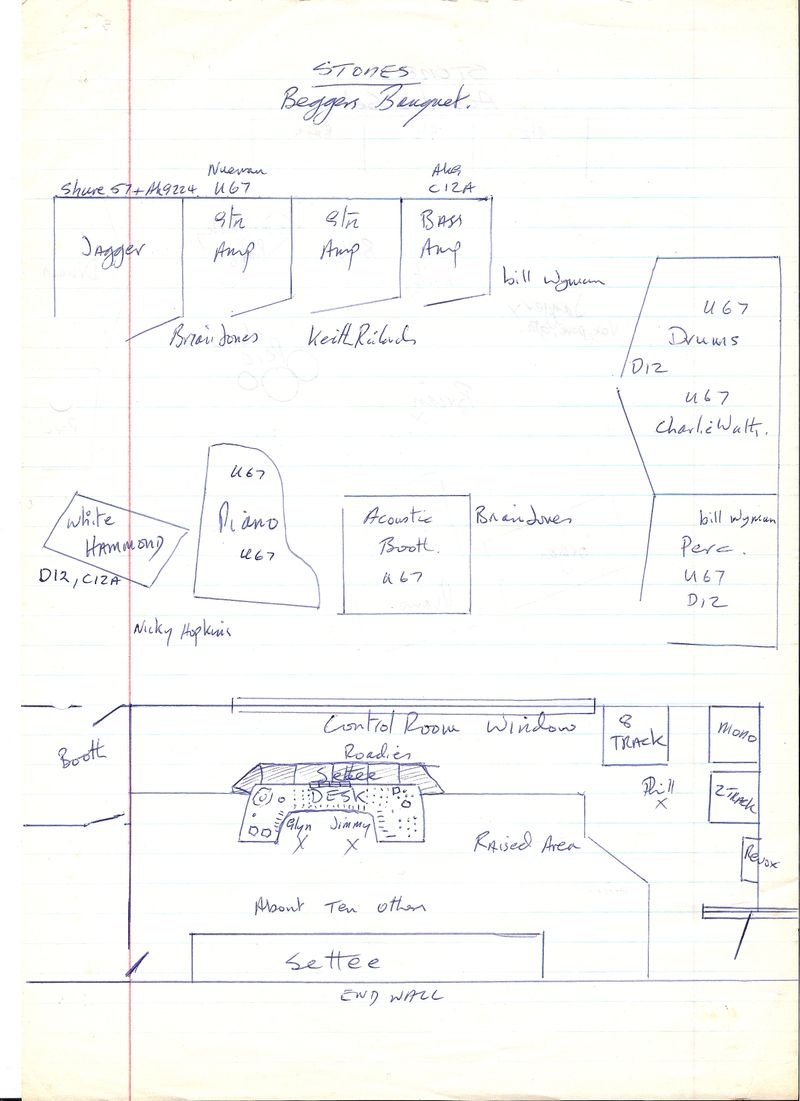 STONES
Beggers Banquet.
Nueman
U67
Akg
C12A
Shure 57 + Akg 224
Jagger
Gtr
Amp
Gtr
Amp
Bass
Amp
bill Wyman
Brian Jones
Keith Richards
U67
Drums
D12
U67
Charlie Watts.
White
HAMMOND
D12, C12A
U67
Piano
U67
Nicky Hopkins
Acoustic
Booth.
U67
Brian Jones
bill Wyman
Perc.
U67
D12
Booth
Control Room Window
Roadies
Settee
DESK
Glyn
X
Jimmy
X
8
TRACK
Phill
X
MONO
2 TRACK
Revox
Raised Area
About Ten others
Settee
END WALL